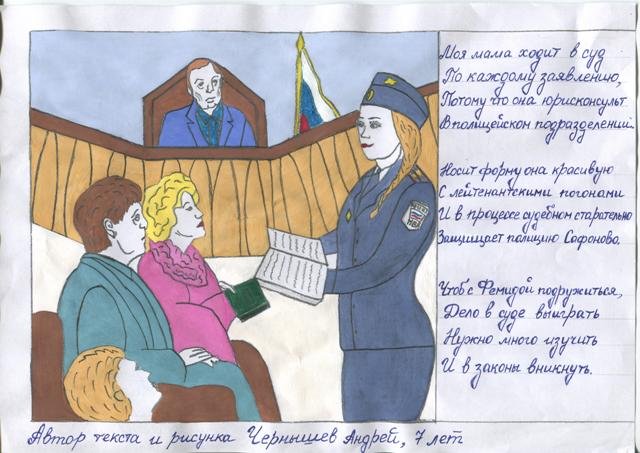 Моя мама ходит в суд
По каждому заявлению,
Потому что она юрисконсульт
В полицейском подразделении.
Носит форму она красивую
С лейтенантскими погонами
И в процессе судебном старательно
Защищает полицию Сафонова.
Чтоб с Фемидой подружиться,
Дело в суде выиграть
Нужно много изучить
И в законы вникнуть.
Автор текста и рисунка Чернышев Андрей, 7 лет